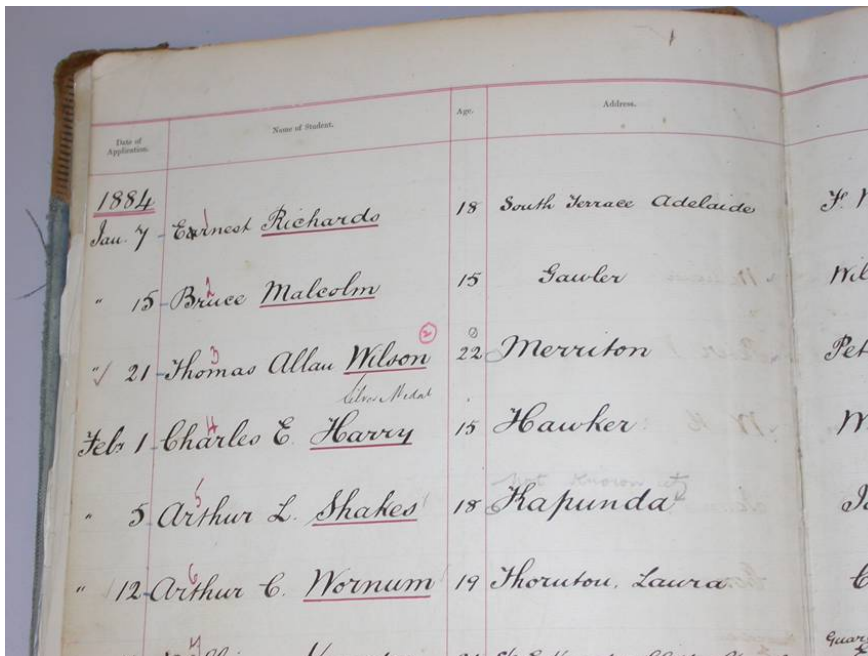 Date of Application.	Name of Student.	Age.	Address.
1884
Jan. 7 - Earnest Richards	18	South Terrace Adelaide
1
" 15 - Bruce Malcolm	15	Gawler
2
" 21 - Thomas Allan Wilson	22	Merriton	Pet
3	2
Silver Medal
Feby 1 - Charles E. Harry	15	Hawker
4
not known at
" 5 Arthur L. Shakes	18	Kapunda
5
" 12 - Arthur C. Wornum	19	Thornton, Laura
6